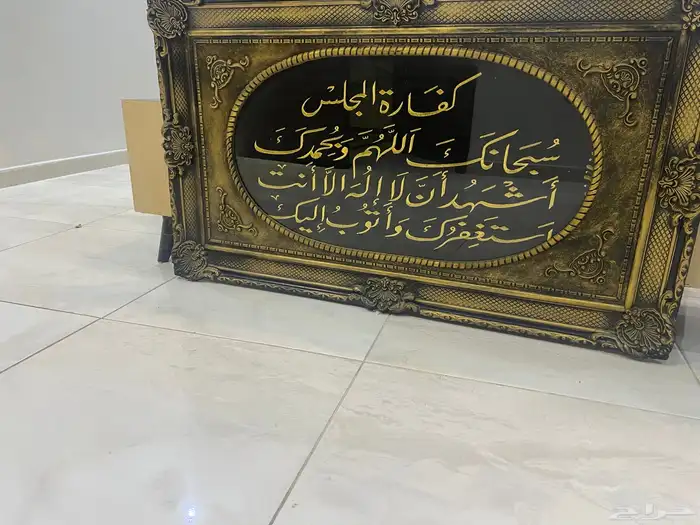 كفارة المجلس
سُبحَانكَ اَللَّهُمَّ وَبِحَمدِكَ
أَشهَدُ أنَّ لَا إِلٰهَ الَّا أَنتَ
أستَغفِرُكَ وَأَتُوبُ إليك
حراج